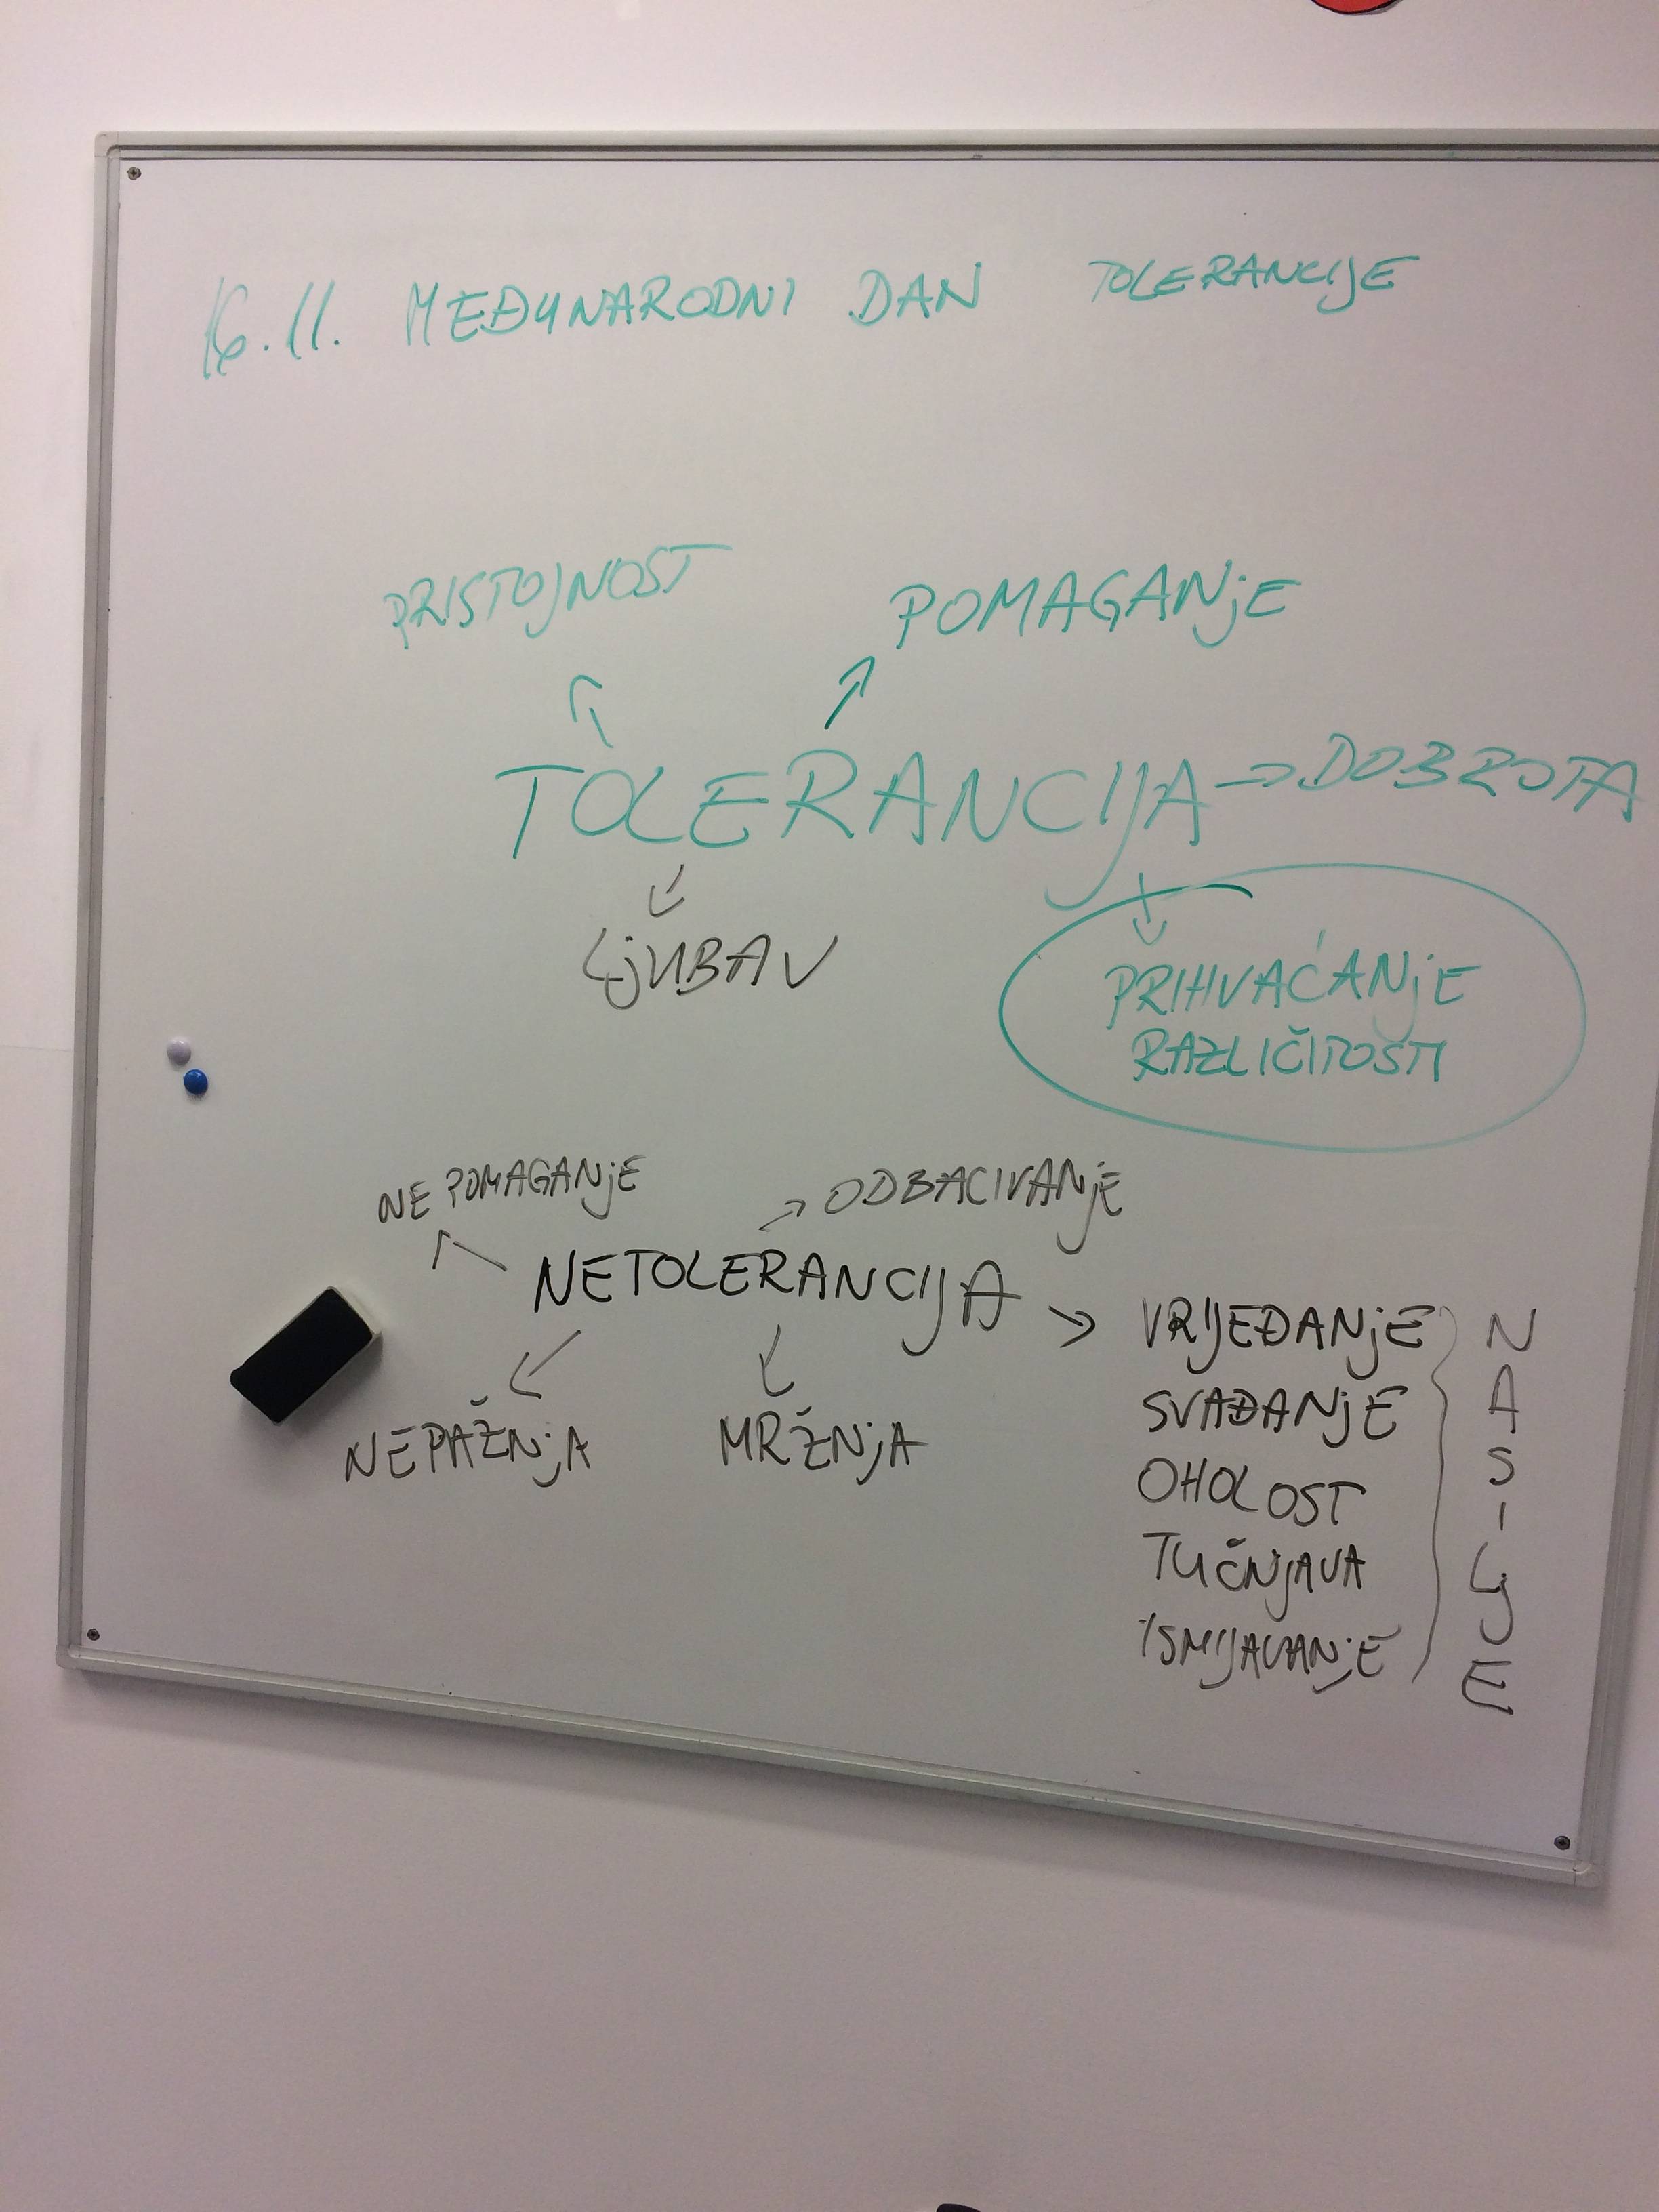 16.11. MEĐUNARODNI DAN TOLERANCIJE
PRISTOJNOST
POMAGANjE
TOLERANCIJA → DOBROTA
LjUBAV
PRIHVAĆANjE
RAZLIČITOSTI
NE POMAGANjE
ODBACIVANjE
NETOLERANCIJA
NEPAŽNjA
MRŽNjA
VRIJEĐANjE
SVAĐANjE
OHOLOST
TUČNJAVA
ISMIJAVANjE
NASILJE